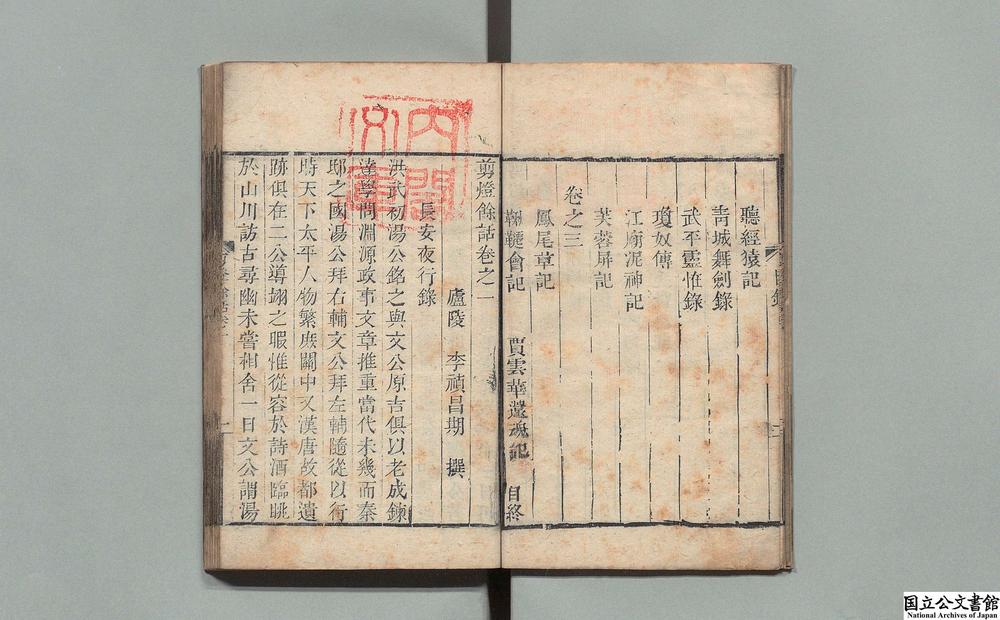 聽經猿記
靑城舞劍錄
武平靈恠錄
瓊奴傳
江廟泥神記
芙蓉屏記
卷之三
鳳尾草記
鞦韆會記　賈雲華還魂記　目終
剪燈餘話卷之一
廬陵　李禎昌期　撰
長安夜行錄
洪武初湯公銘之與文公原吉俱以老成鍊
達學問淵源政事文章推重當代未幾而秦
邸之國湯公拜右輔文公拜左輔隨從以行
時天下太平人物繁庶關中又漢唐故都遺
跡俱在二公導翊之暇惟從容於詩酒臨眺
於山川訪古尋幽未嘗相舍一日文公謂湯
一
內閣文庫
国立公文書館
National Archives of Japan